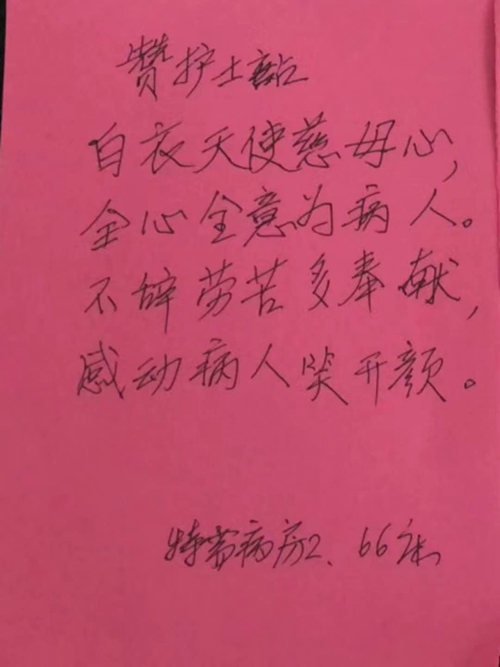 赞护士站
白衣天使慈母心,
全心全意为病人。
不辞劳苦多奉献,
感动病人笑开颜。
特需病房2、66床